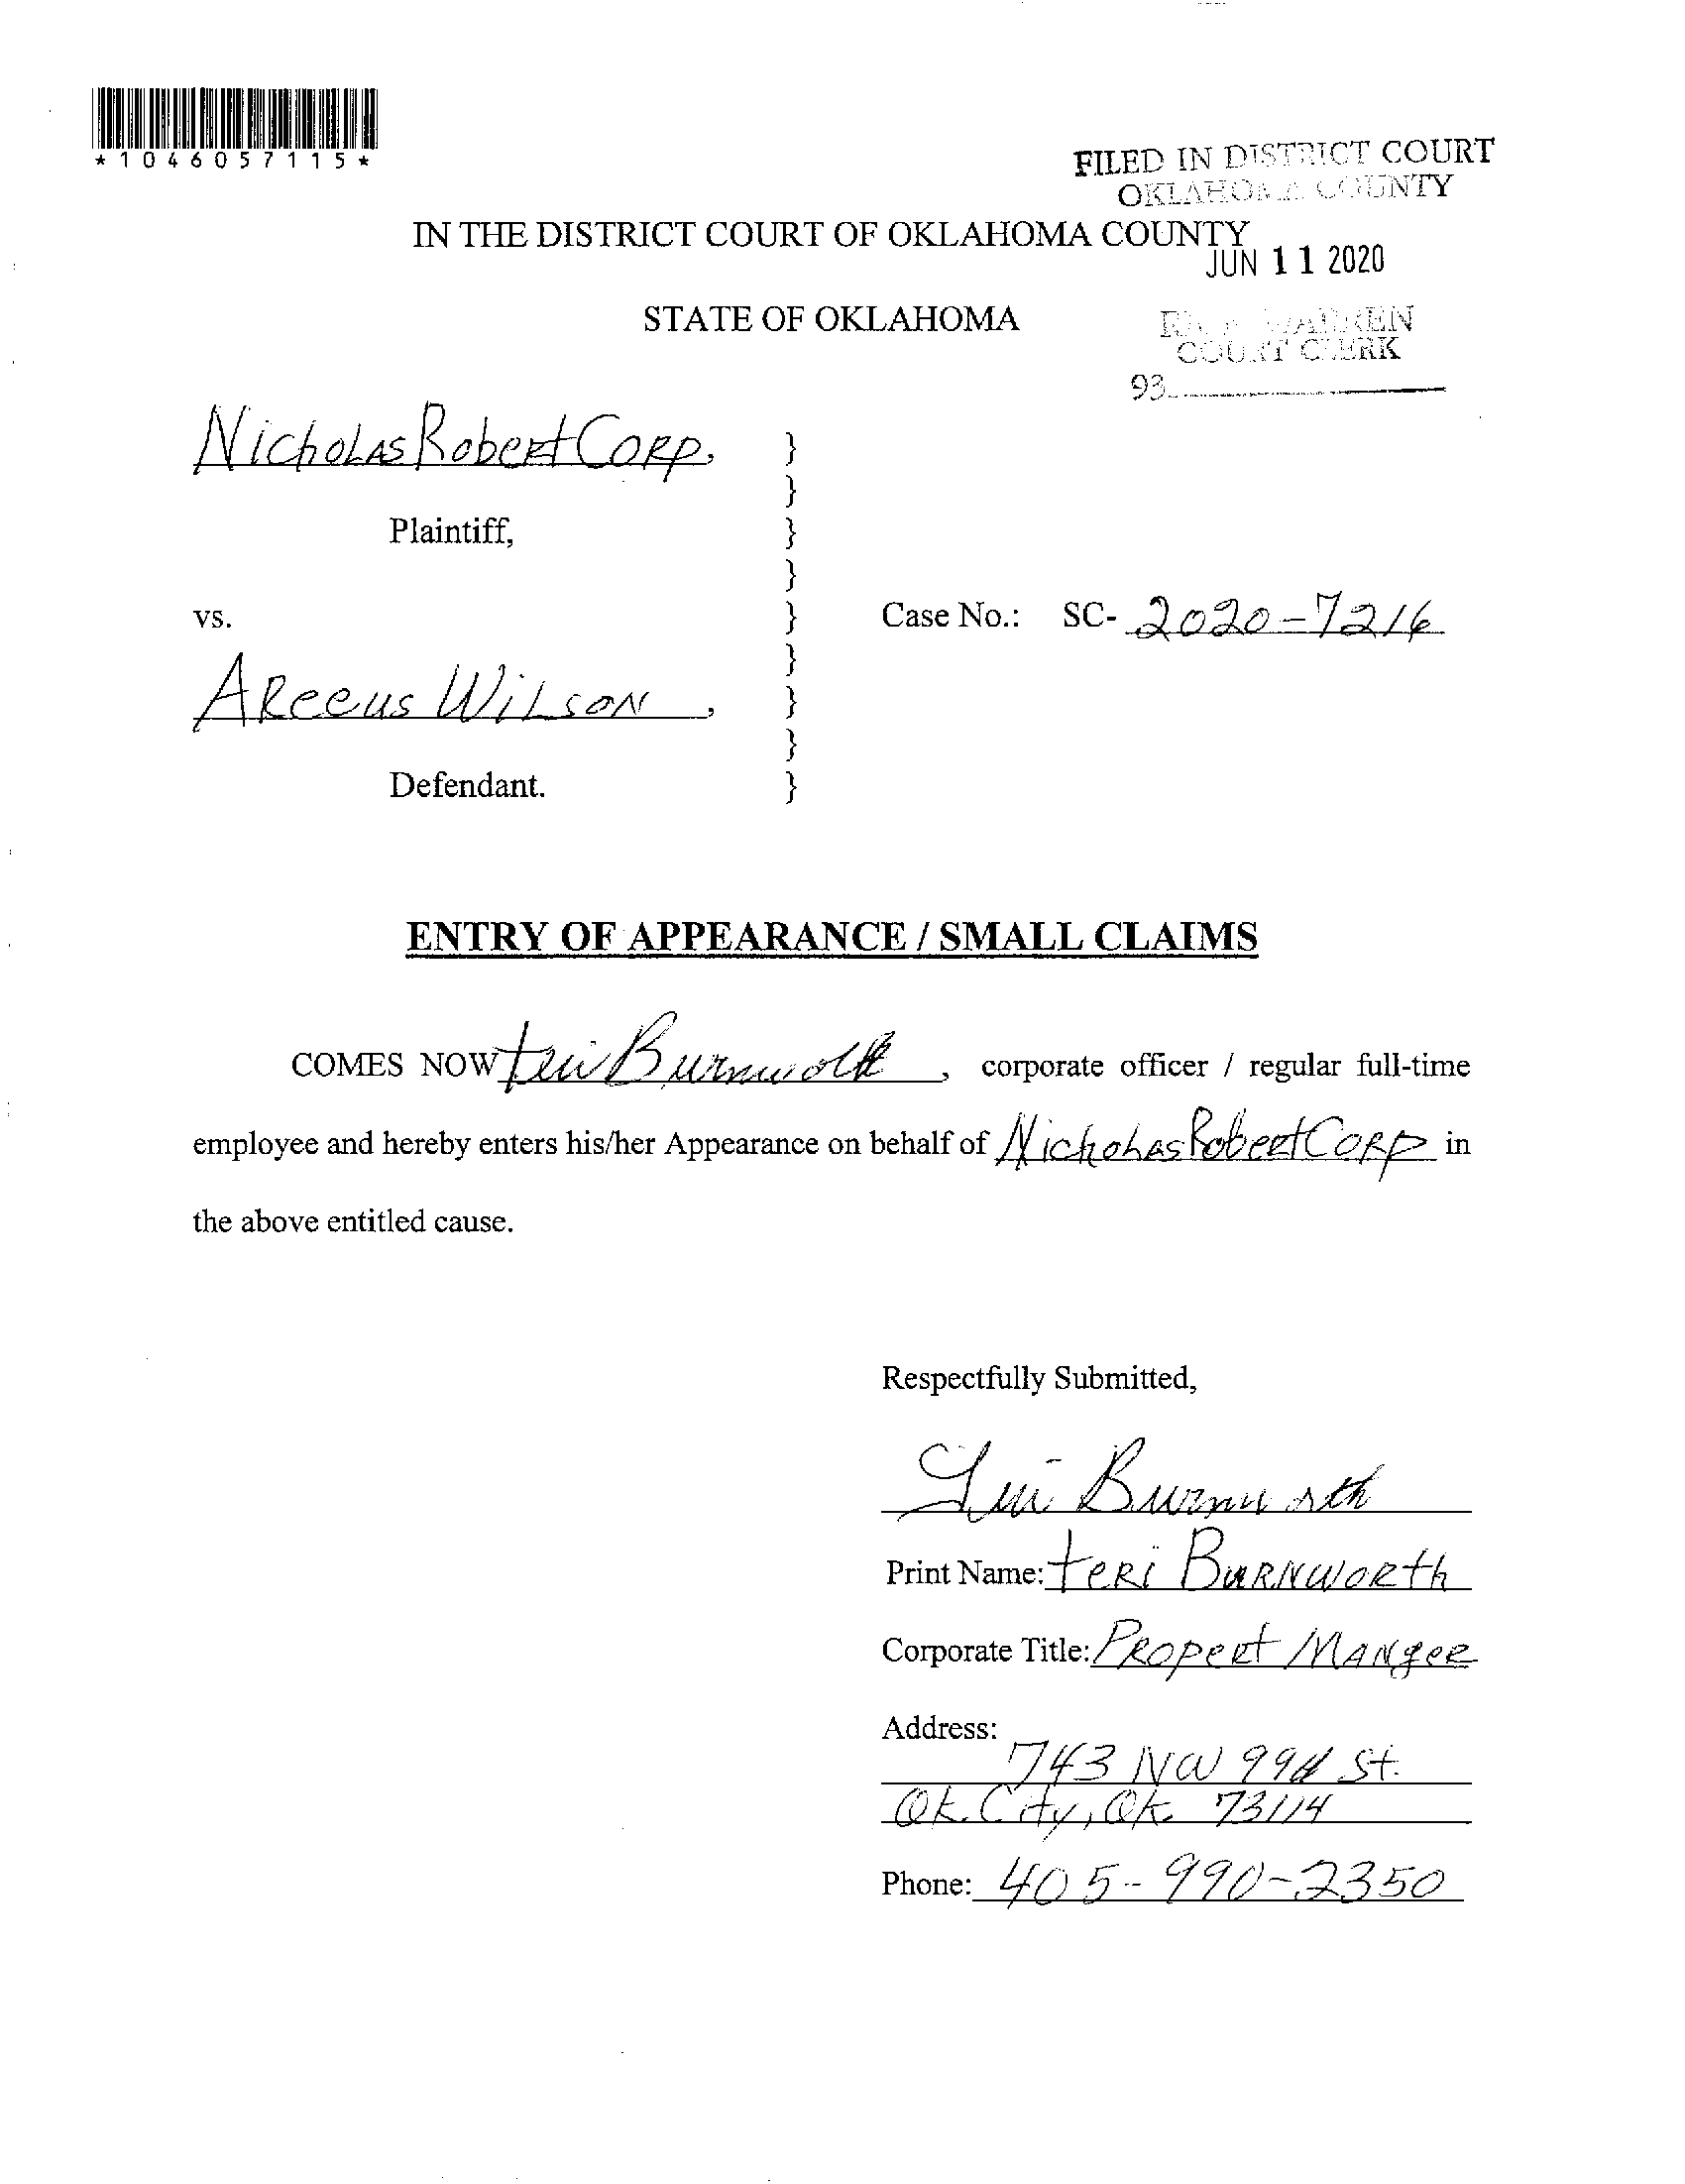 *1046057115*
FILED IN DISTRICT COURT
OKLAHOMA COUNTY
IN THE DISTRICT COURT OF OKLAHOMA COUNTY
JUN 11 2020
STATE OF OKLAHOMA
WARREN
COURT CLERK
93
Nicholas Robert Corp,
Plaintiff,
vs.
Case No.: SC- 2020-7216
Areeus Wilson,
Defendant.
}
}
}
}
}
}
}
}
}
ENTRY OF APPEARANCE / SMALL CLAIMS
COMES NOW Teri Burnworth, corporate officer / regular full-time
employee and hereby enters his/her Appearance on behalf of Nicholas Robert Corp in
the above entitled cause.
Respectfully Submitted,
Teri Burnworth
Print Name: Teri Burnworth
Corporate Title: Propert Mangee
Address:
743 NW 99th St.
Ok. City, Ok. 73114
Phone: 405-990-2350